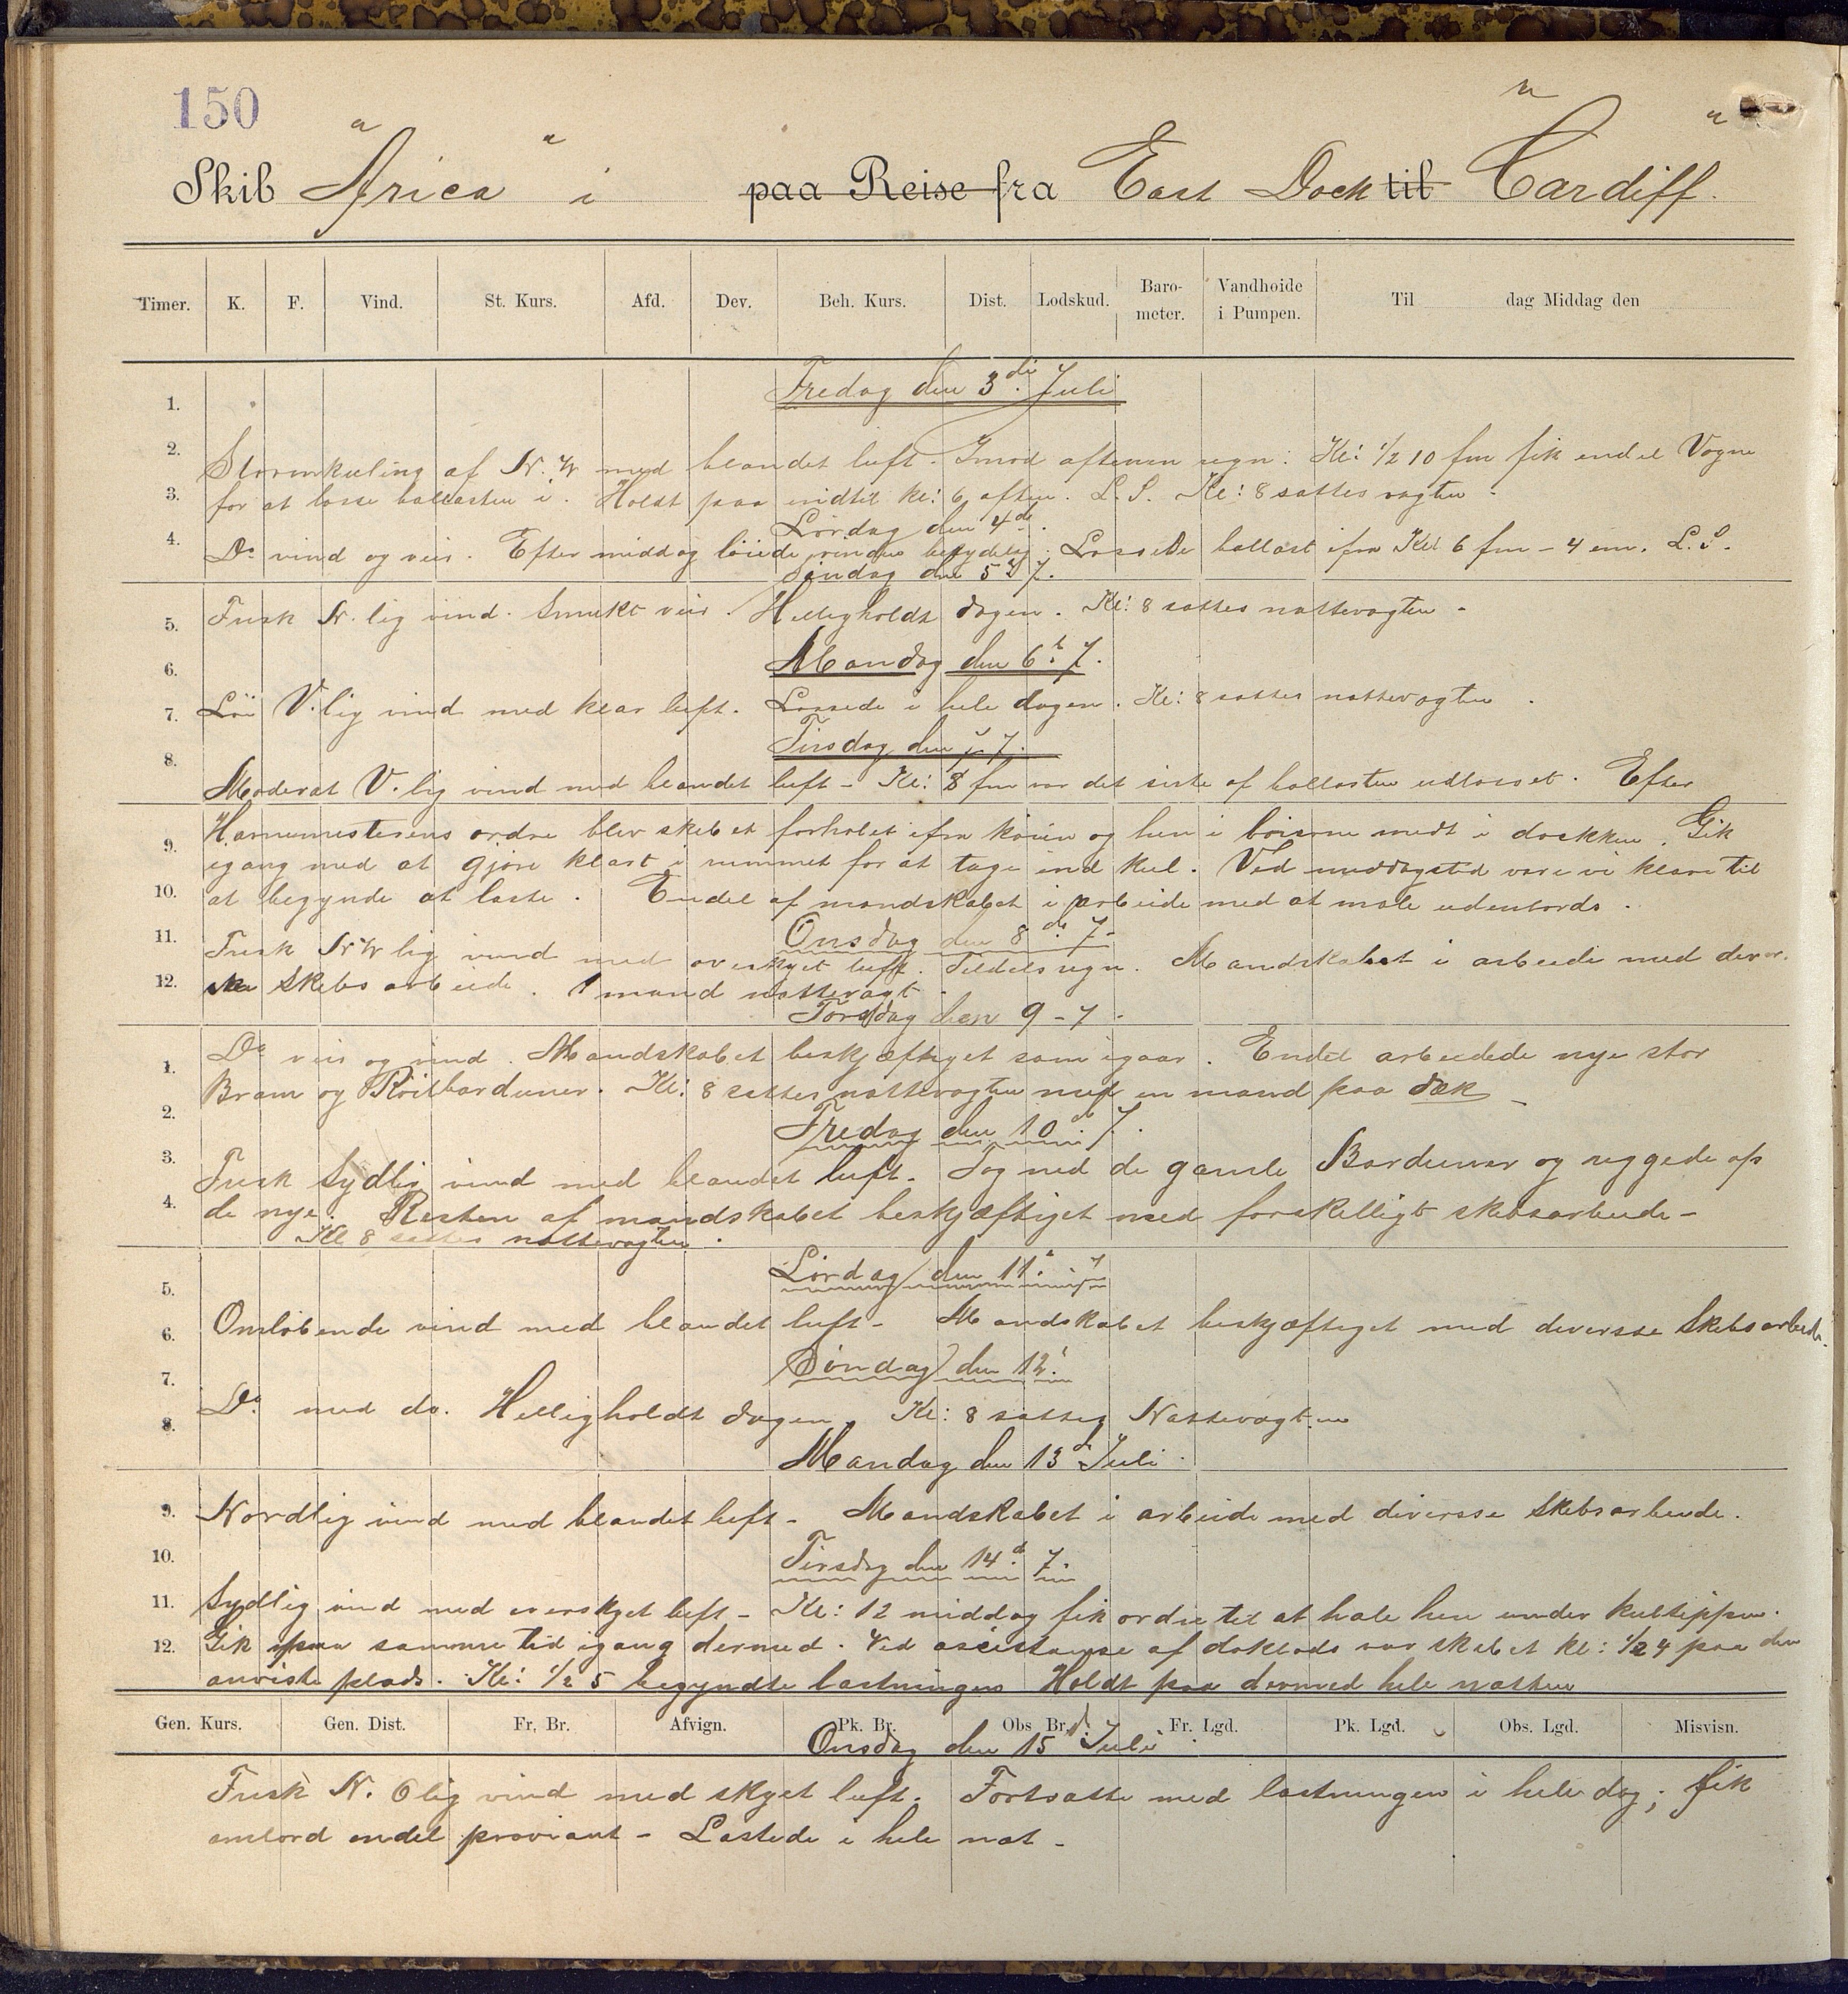 150
Skib "Arica" i paa Reise fra East Dock til "Cardiff".
Timer. K. F. Vind. St. Kurs. Afd. Dev. Beh. Kurs. Dist. Lodskud. Barometer. Vandhoide i Pumpen. Til dag Middag den
Fredag den 3die Juli
Stormkuling af N.W med blandet luft. Imod aftenen regn. Kl: 1/2 10 fm fik endel Vogne
for at losse ballasten i. Holdt paa indtil kl: 6 aften. L.S. Kl: 8 sattes vagten.
Lørdag den 4de.
Do vind og veir. Eftermiddag løiede vinden betydelig. Lossede ballast ifra Kl 6 fm - 4 em. L.S.
Søndag den 5d 7.
Frisk N.lig vind. Smukt veir. Helligholdt dagen. Kl: 8 sattes nattevagten.
Mandag den 6t 7.
Løi V.lig vind med klar luft. Lossede i hele dagen. Kl: 8 sattes nattevagten.
Tirsdag den 7. 7.
Moderat V.lig vind med blandet luft - Kl: 8 fm var det siste af ballasten udlosset. Efter
Havnemesterens ordre blev skibet forhalet ifra kaien og hen i bøierne midt i dokken. Gik
igang med at gjøre klart i rummet for at tage ind kul. Ved middagstid vare vi klare til
at begynde at laste. Endel af mandskabet i arbeide med at male udenbords.
Onsdag den 8de 7.
Frisk N.W lig vind med overskyet luft. Tildels regn. Mandskabet i arbeide med diver.
ske Skibsarbeide. 1 mand nattevagt
Torsdag den 9 - 7.
Do veir og vind. Mandskabet beskjæftiget som igaar. Endel arbeidede nye stor
Bram og Røilbarduner. Kl: 8 sattes nattevagten med en mand paa dæk
Fredag den 10d 7.
Frisk Sydlig vind med blandet luft. Tog ned de gamle Barduner og riggede op
de nye. Resten af mandskabet beskjæftiget med forskelligt skibsarbeide -
Kl 8 sattes nattevagten.
Lørdag den 11t 7
Omløbende vind med blandet luft - Mandskabet beskjæftiget med diversse Skibsarbeide.
Søndag den 12t
Do. med do. Helligholdt dagen. Kl: 8 sattes Nattevagten
Mandag den 13d Juli.
Nordlig vind med blandet luft - Mandskabet i arbeide med diversse Skibsarbeide.
Tirsdag den 14d. 7.
Sydlig vind med overskyet luft - Kl: 12 middag fik ordre til at hale hen under kultippen.
Gik paa samme tid igang dermed. Ved assistanse af doklods var skibet kl: 1/2 4 paa den
anviste plads. Kl: 1/2 5 begyndte lastningen Holdt paa dermed hele natten
Gen. Kurs. Gen. Dist. Fr. Br. Afvign. Pk. Br. Obs Br. Fr. Lgd. Pk. Lgd. Obs. Lgd. Misvisn.
Onsdag den 15d. Juli
Frisk N.Olig vind med skyet luft. Fortsatte med lastningen i hele dag; fik
ombord endel proviant - Lastede i hele nat -
1.
2.
3.
4.
5.
6.
7.
8.
9.
10.
11.
12.
1.
2.
3.
4.
5.
6.
7.
8.
9.
10.
11.
12.